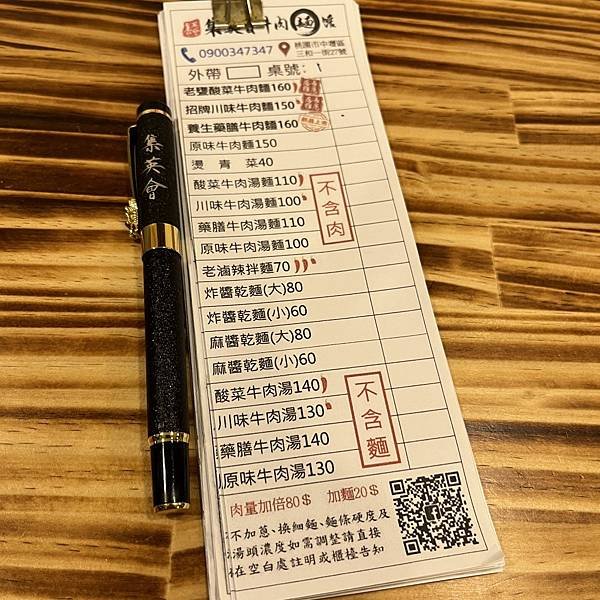 集英會牛肉麵館
0900347347 桃園市中壢區
三和一街27號
外帶 桌號: 1
老甕酸菜牛肉麵160
招牌川味牛肉麵150
養生藥膳牛肉麵160
原味牛肉麵150
燙 青 菜40
酸菜牛肉湯麵110
川味牛肉湯麵100
藥膳牛肉湯麵110
原味牛肉湯麵100
不含肉
老滷辣拌麵70
炸醬乾麵(大)80
炸醬乾麵(小)60
麻醬乾麵(大)80
麻醬乾麵(小)60
酸菜牛肉湯140
川味牛肉湯130
藥膳牛肉湯140
原味牛肉湯130
不含麵
肉量加倍80$ 加麵20$
不加蔥、換細麵、麵條硬度及
湯頭濃度如需調整請直接
在空白處註明或櫃檯告知
集英會